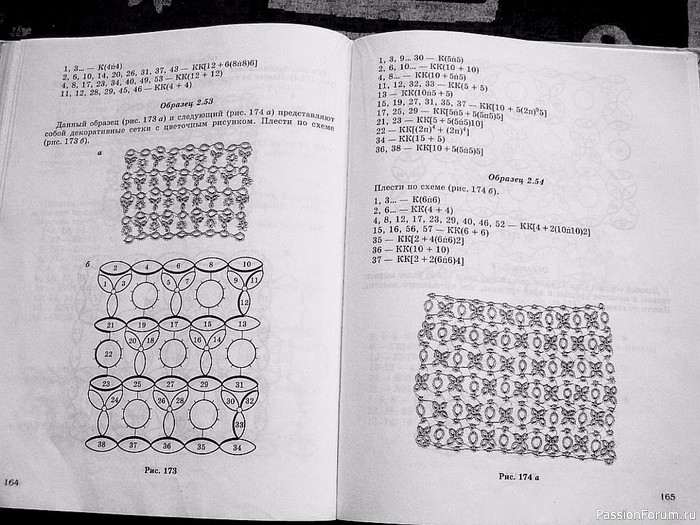 1, 3... — К(4п̄4)    КК[12 + 6(8п̄8)6]
2, 6, 10, 14, 20, 26, 31, 37, 43 — КК[12 + 6(8п̄8)6]
4, 8, 17, 23, 34, 40, 49, 53 — КК(12 + 12)
11, 12, 28, 29, 45, 46 — КК(4 + 4)
Образец 2.53
Данный образец (рис. 173 а) и следующий (рис. 174 а) представляют
собой декоративные сетки с цветочным рисунком. Плести по схеме
(рис. 173 б).
а
б
2 4 6 8 10
1 3 5 7 9 11
12
21 19 17 15 13
20 18 16 14
22
23 25 27 29 31
24 26 28 30 32
33
38 37 36 35 34
Рис. 173
164
1, 3, 9... 30 — К(5п̄5)
2, 6, 10... — КК(10 + 10)
4, 8... — КК(10 + 5п̄5)
11, 12, 32, 33 — КК(5 + 5)
13 — КК(10п̄5 + 5)
15, 19, 27, 31, 35, 37 — КК[10 + 5(2п)⁹5]
17, 25, 29 — КК[5п̄5 + 5(5п̄5)5]
21, 23 — КК[5 + 5(5п̄5)10]
22 — КК[(2п)⁴ + (2п)⁴]
34 — КК(15 + 5)
36, 38 — КК[10 + 5(5п̄5)5]
Образец 2.54
Плести по схеме (рис. 174 б).
1, 3... — К(6п̄6)
2, 6... — КК(4 + 4)
4, 8, 12, 17, 23, 29, 40, 46, 52 — КК[4 + 2(10п̄10)2]
15, 16, 56, 57 — КК(6 + 6)
35 — КК[2 + 4(6п̄6)2]
36 — КК(10 + 10)
37 — КК[2 + 2(6п̄6)4]
Рис. 174 а
165
PassionForum.ru